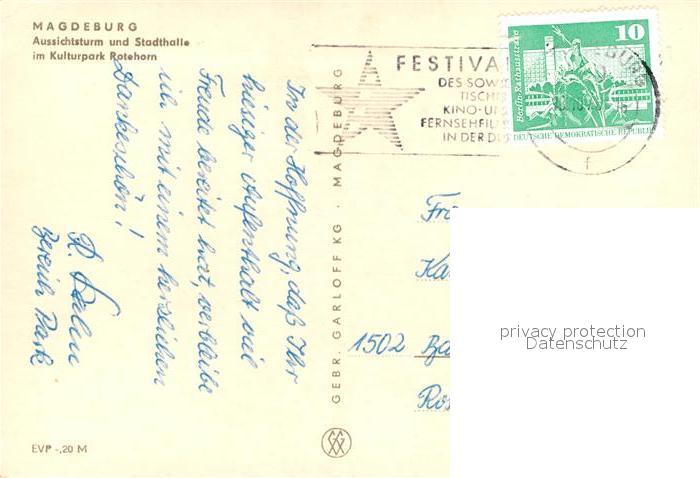 MAGDEBURG
Aussichtsturm und Stadthalle
im Kulturpark Rotehorn
In der Hoffnung, daß Ihr
hiesiger Aufenthalt viel
Freude bereitet hat, verbleibe
ich mit einem herzlichen
Dankeschön!
Bereich Park
EVP -,20 M
GEBR. GARLOFF KG · MAGDEBURG
FESTIVA
DES SOW
TISCHE
KINO-UN
FERNSEHFIL
IN DER D
10
Berlin, Rathausstraße
DEUTSCHE DEMOKRATISCHE REPUBLIK
f
Fr
Ka
1502 Ba
Ro
privacy protection
Datenschutz